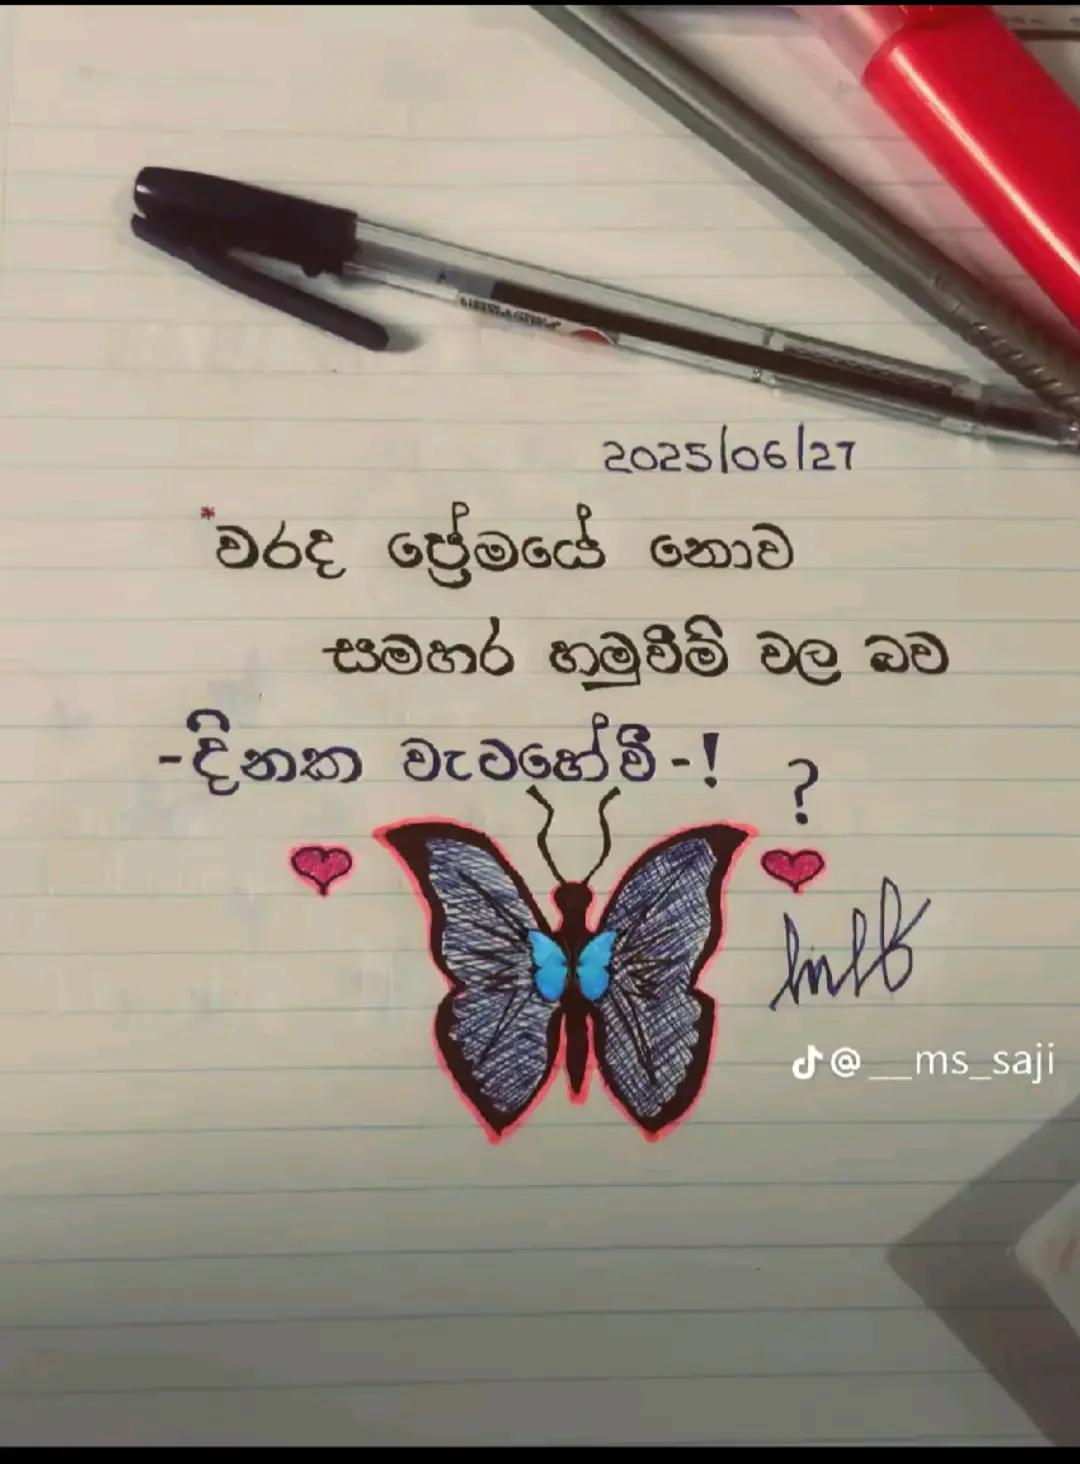 2025/06/27
*වරද ප්‍රේමයේ නොව
සමහර හමුවීම් වල බව
-දිනක වැටහේවී-!
?
@__ms_saji